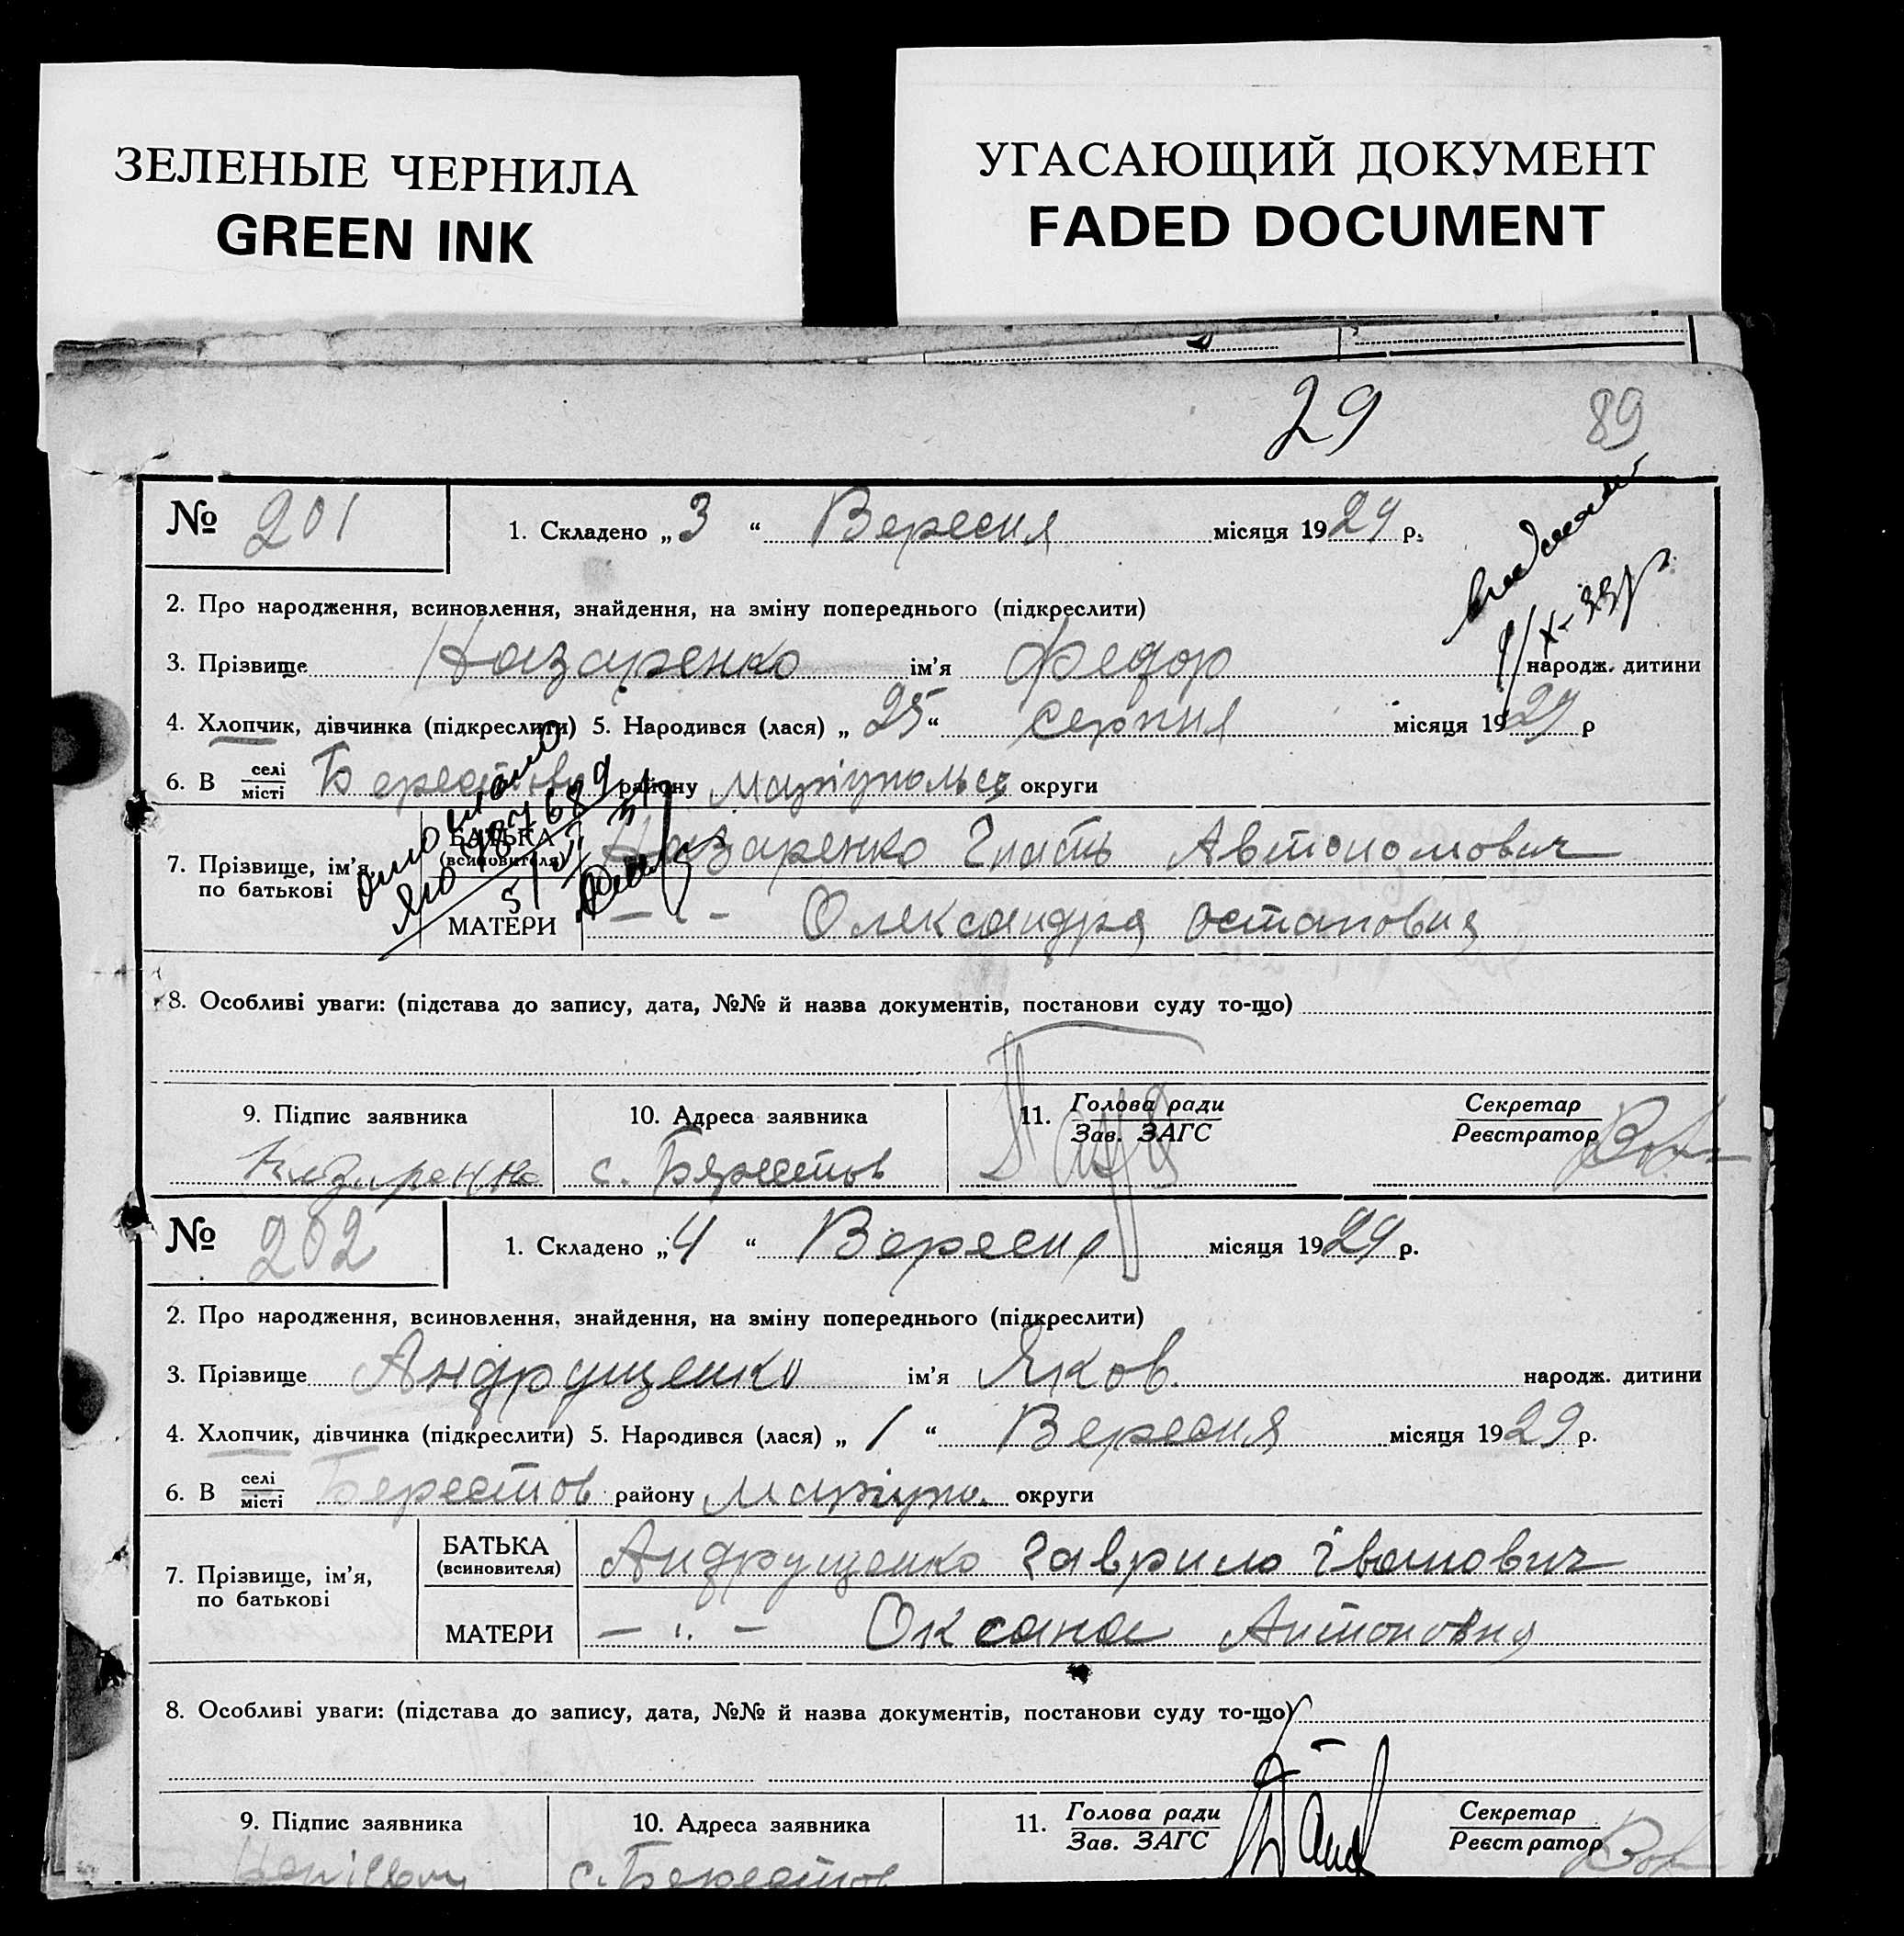 ЗЕЛЕНЫЕ ЧЕРНИЛА
GREEN INK
УГАСАЮЩИЙ ДОКУМЕНТ
FADED DOCUMENT
29 89
№ 201 1. Складено „3“ Вересня місяця 1929 р.
2. Про народження, всиновлення, знайдення, на зміну попереднього (підкреслити)
3. Прізвище Назаренко ім'я Федор народж. дитини
4. Хлопчик, дівчинка (підкреслити) 5. Народився (лася) „25“ серпня місяця 1929 р
6. В селі/місті району округи
7. Прізвище, ім'я, по батькові
БАТЬКА (всиновителя) Назаренко Гнать Автономович
МАТЕРИ — " — Олександра Остаповна
8. Особливі уваги: (підстава до запису, дата, №№ й назва документів, постанови суду то-що)
9. Підпис заявника 10. Адреса заявника 11. Голова ради/Зав. ЗАГС Секретар/Реєстратор
Назаренко с. Берестов
№ 202 1. Складено „4“ Вересня місяця 1929 р.
2. Про народження, всиновлення, знайдення, на зміну попереднього (підкреслити)
3. Прізвище Андрущенко ім'я Яков народж. дитини
4. Хлопчик, дівчинка (підкреслити) 5. Народився (лася) „1“ Вересня місяця 1929 р.
6. В селі/місті Берестов району Маріуп. округи
7. Прізвище, ім'я, по батькові
БАТЬКА (всиновителя) Андрущенко Гаврило Іванович
МАТЕРИ — " — Оксана Антоновна
8. Особливі уваги: (підстава до запису, дата, №№ й назва документів, постанови суду то-що)
9. Підпис заявника 10. Адреса заявника 11. Голова ради/Зав. ЗАГС Секретар/Реєстратор
с. Берестов